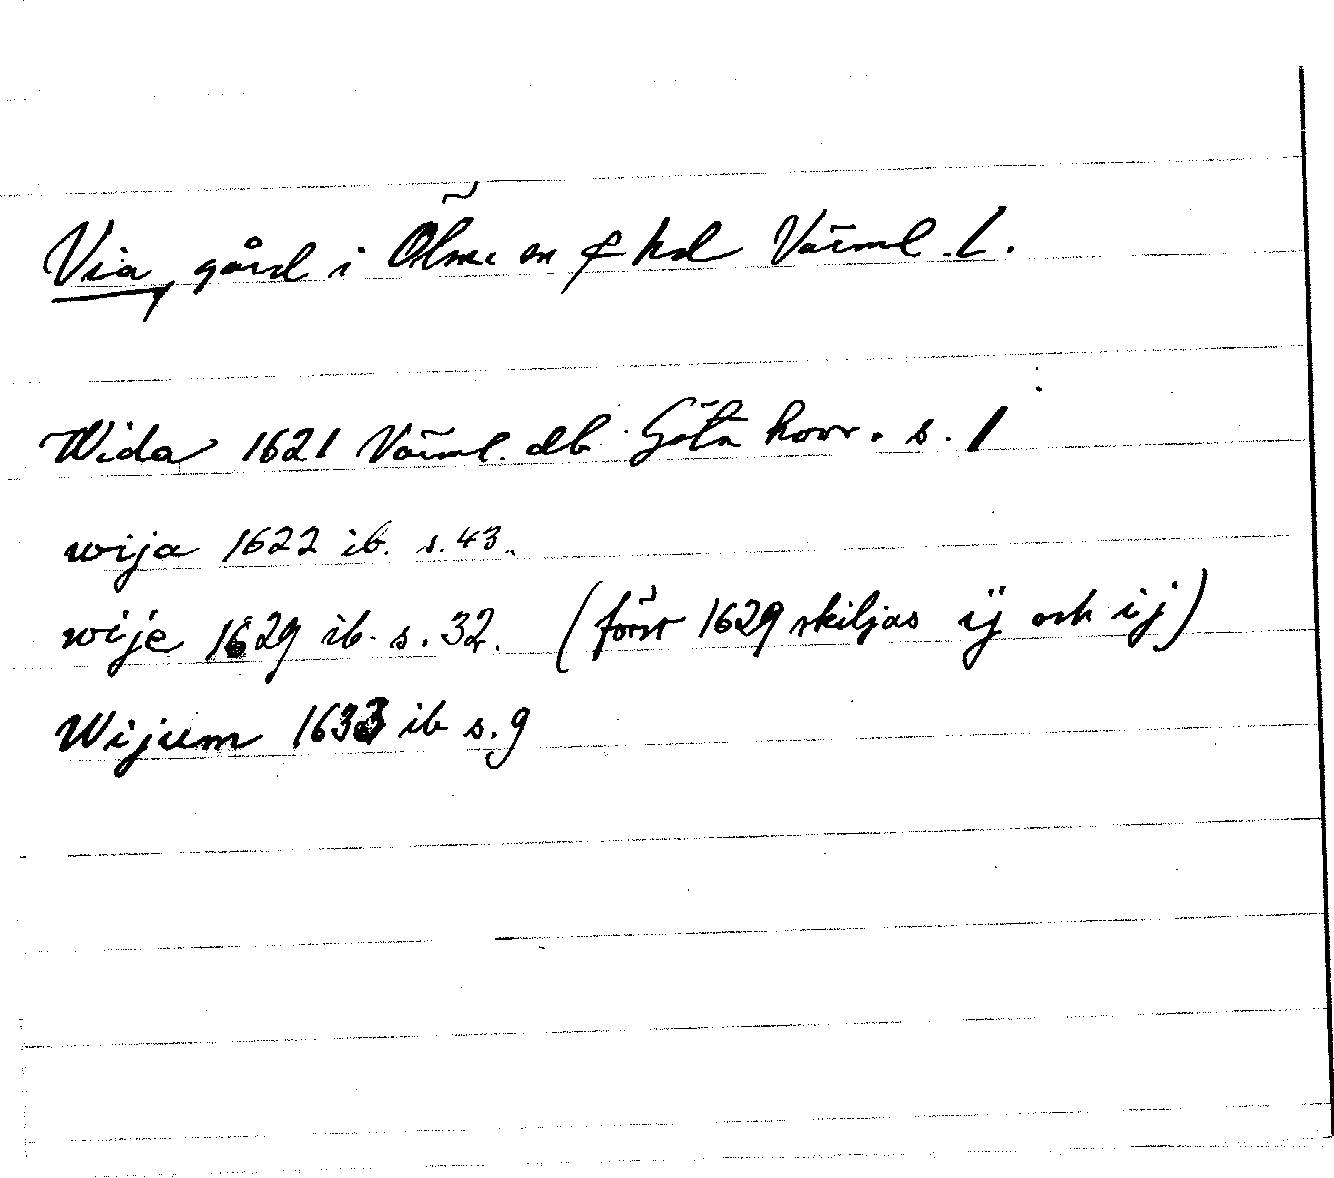 Via, gård i Ölme sn & hd Värml. l.
Wida 1621 Värml. db Göta hovr. s. 1
wija 1622 ib. s. 43.
wije 1629 ib. s. 32. (först 1629 skiljas ÿ och ij)
Wijum 1633 ib s. 9